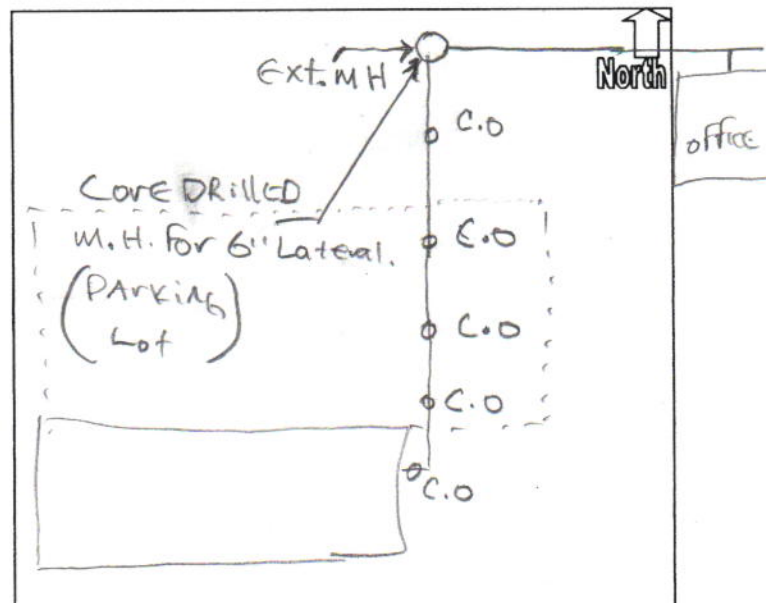 Ext. MH
North
C.O
office
CorE DRillED
M.H. For 6" Lateral.
C.O
(PArking
Lot)
C.O
C.O
C.O